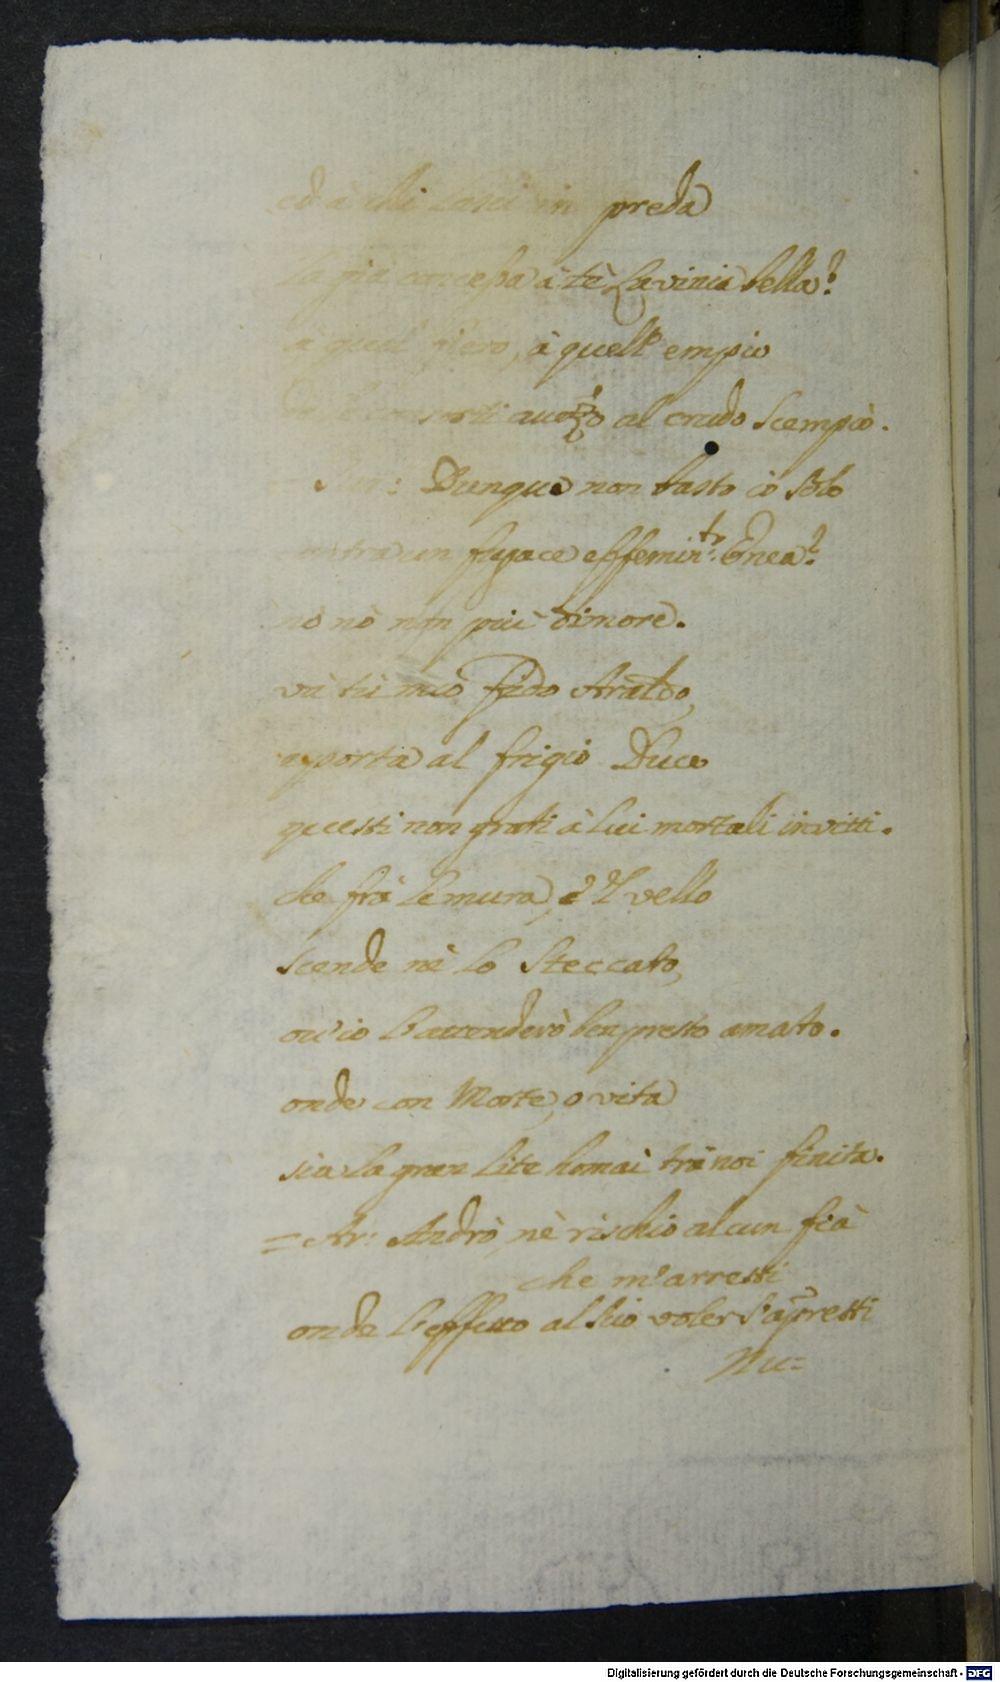 ed à chi lasci in preda
la già concessa à tè Lavinia bella?
à quel fiero, à quell' empio
consorti al crudo scempio.
Dunque non basto io solo
un fugace effemin.to Enea?
nò nò non più dimore.
và tù mio fido Araldo,
apporta al frigio Duce
questi non grati à lui mortali invitti.
che frà le mura, e 'l vello
scende nè lo steccato,
ou'io l'attenderò ben presto amato.
onde con Morte, o vita
sia la gran lite homai trà noi finita.
= Ar: Andrò, nè rischio alcun fià
che m'arresti
onde l'effetto al suo voler s'appresti
Digitalisierung gefördert durch die Deutsche Forschungsgemeinschaft - DFG